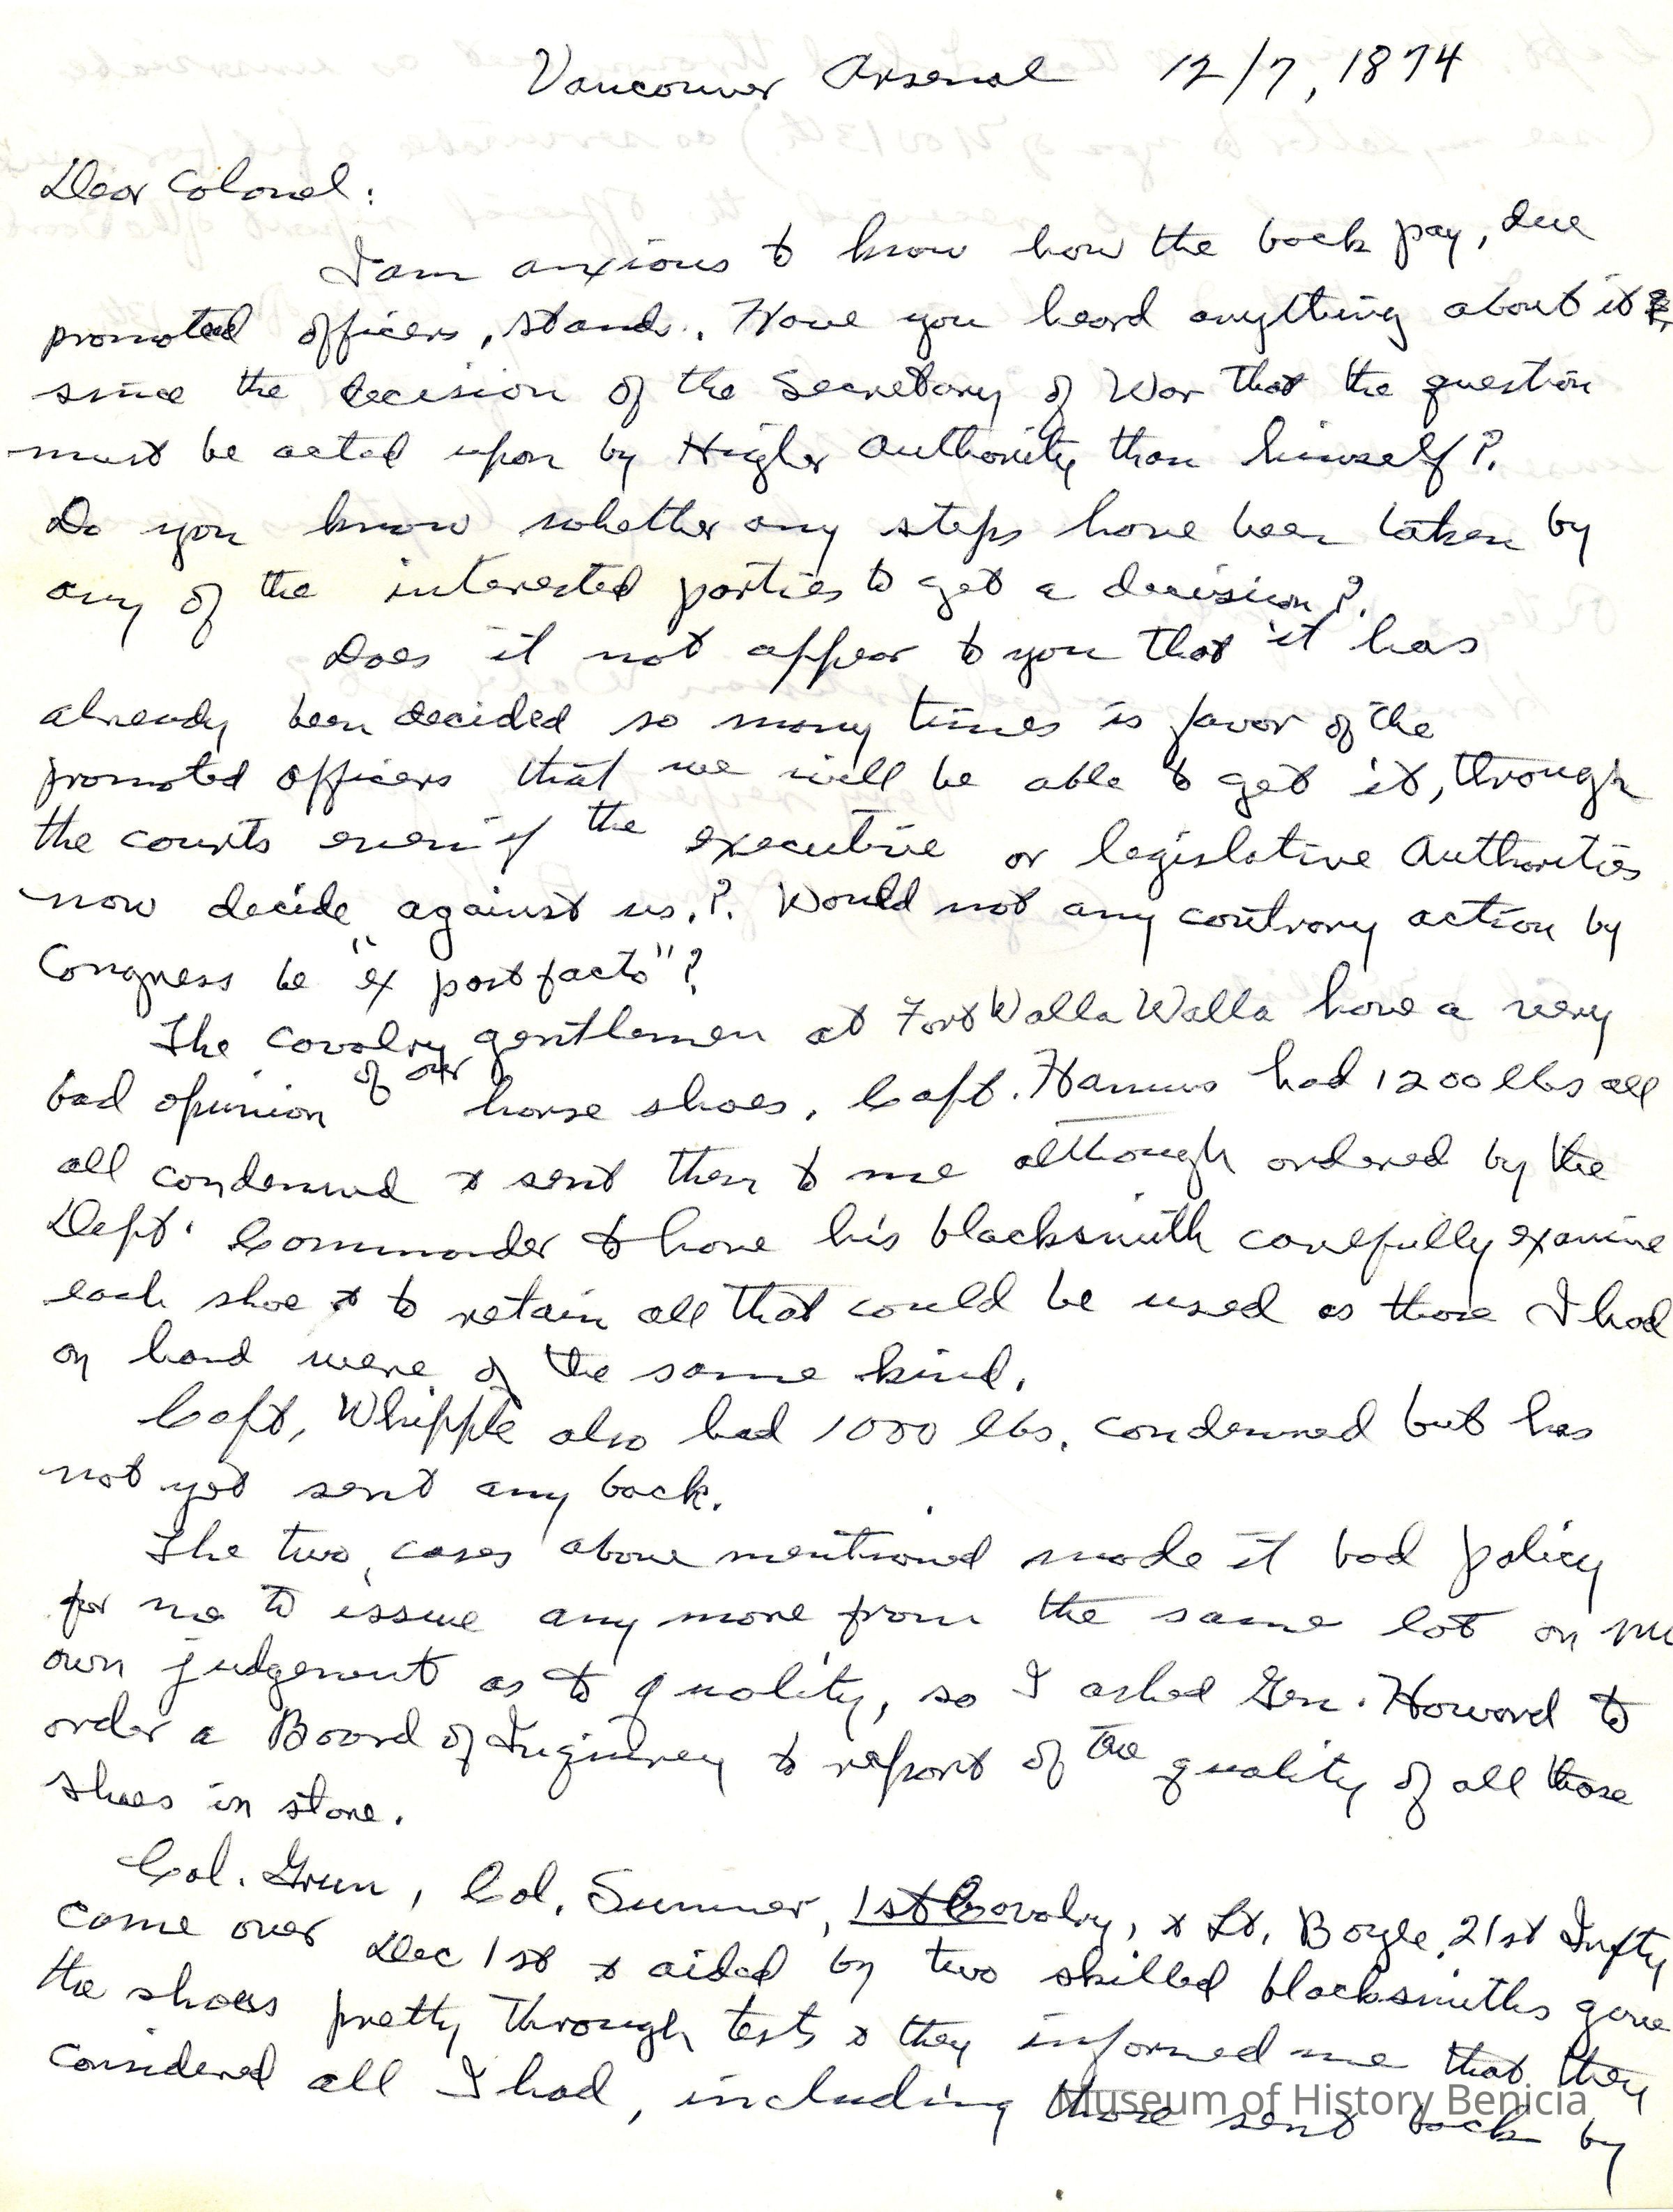 Vancouver Arsenal 12/7, 1874
Dear Colonel:
I am anxious to know how the back pay, due
promoted officers, stands. Have you heard anything about it
since the decision of the Secretary of War that the question
must be acted upon by Higher Authority than himself?.
Do you know whether any steps have been taken by
any of the interested parties to get a decision?.
Does it not appear to you that it has
already been decided so many times is favor of the
promoted officers that we will be able to get it, through
the courts even if the executive or legislative Authorities
now decide against us.?. Would not any contrary action by
Congress be "ex post facto"?
The cavalry gentlemen at Fort Walla Walla have a very
bad opinion of our horse shoes. Capt. had 1200 lbs all
all condemned & sent them to me although ordered by the
Dept. Commander to have his blacksmith carefully examine
each shoe & to retain all that could be used as those I had
on hand were of the same kind.
Capt, Whipple also had 1000 lbs. condemned but has
not yet sent any back.
The two cases above mentioned made it bad policy
for me to issue any more from the same lot on
own judgement as to quality, so I asked Gen. Howard to
order a Board of to report of the quality of all those
shoes in store.
Col. , Col. Sumner, 1st Cavalry, & Lt. Boyle, 21st Infty
came over Dec 1st & aided by two skilled blacksmiths gave
the shoes pretty through tests & they informed me that they
considered all I had, including those sent back by
Museum of History Benicia